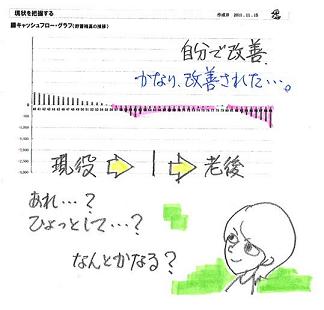 現状を把握する
作成日 2011.11.15
■キャッシュフロー・グラフ(貯蓄残高の推移)
自分で改善.
かなり、改善された…。
現役 ⇨ | ⇨ 老後
あれ…?
ひょっとして…?
なんとかなる?